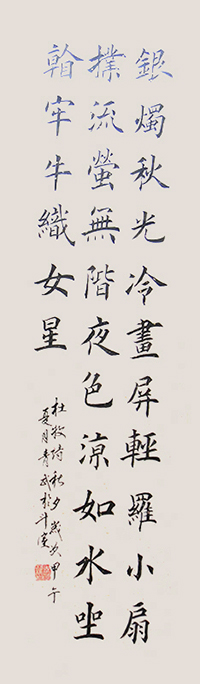 銀燭秋光冷畫屏輕羅小扇
撲流螢無階夜色涼如水坐
看牽牛織女星
杜牧诗秋夕歲次甲午
夏月青武於斗室